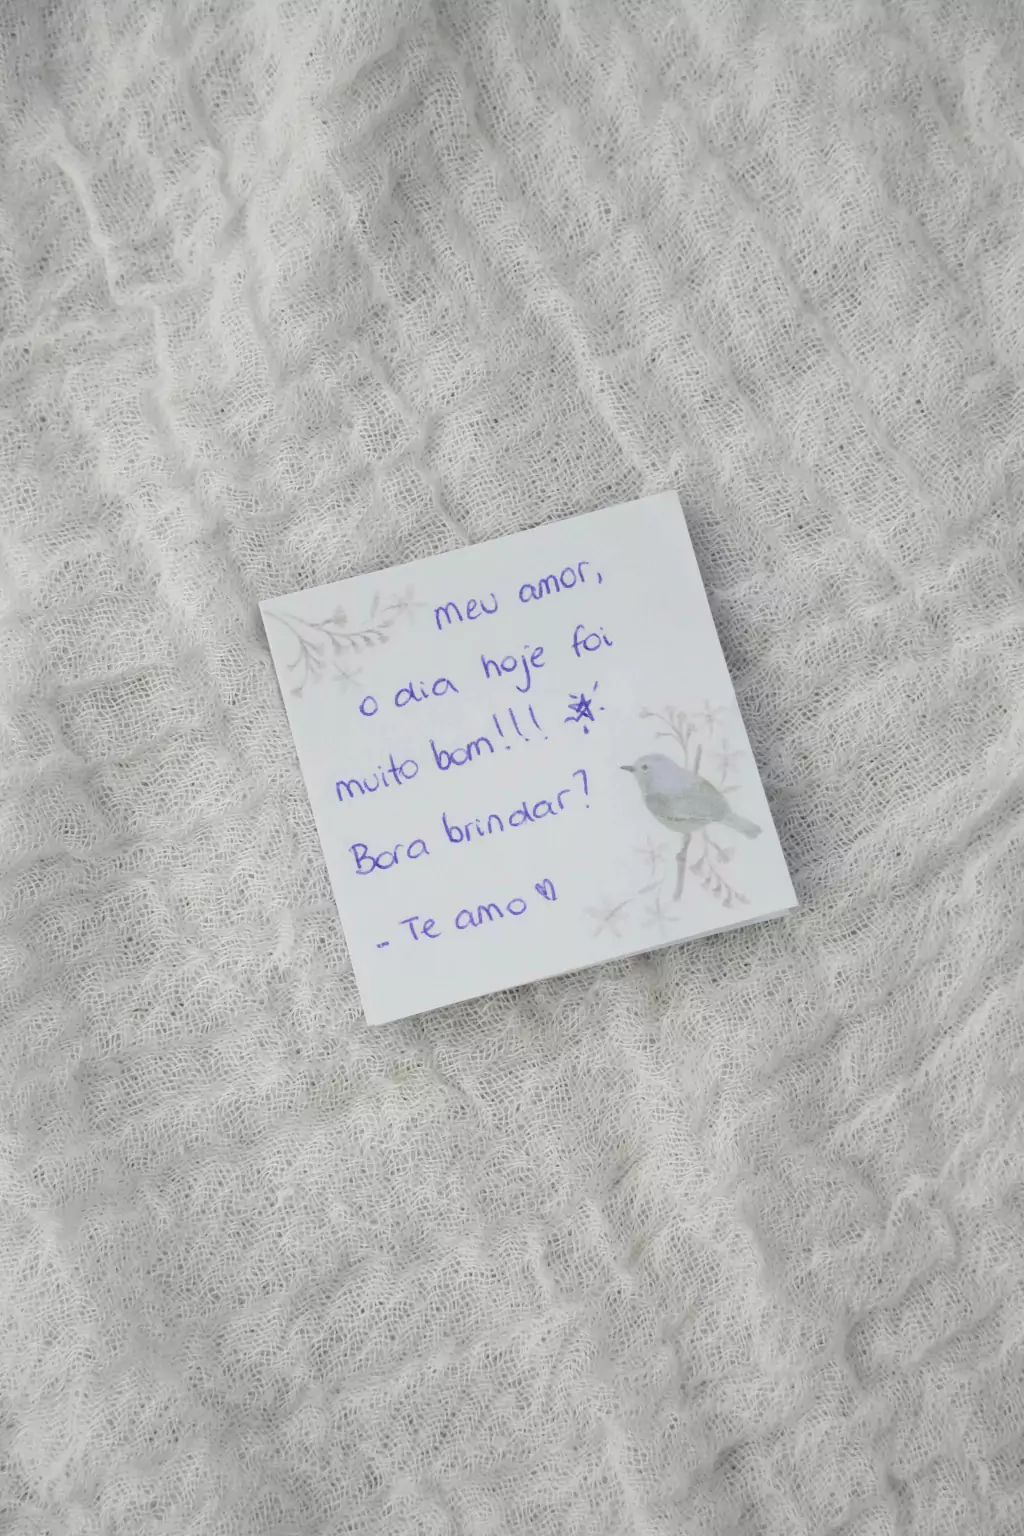 meu amor,
o dia hoje foi
muito bom!!!
Bora brindar?
- Te amo ♡